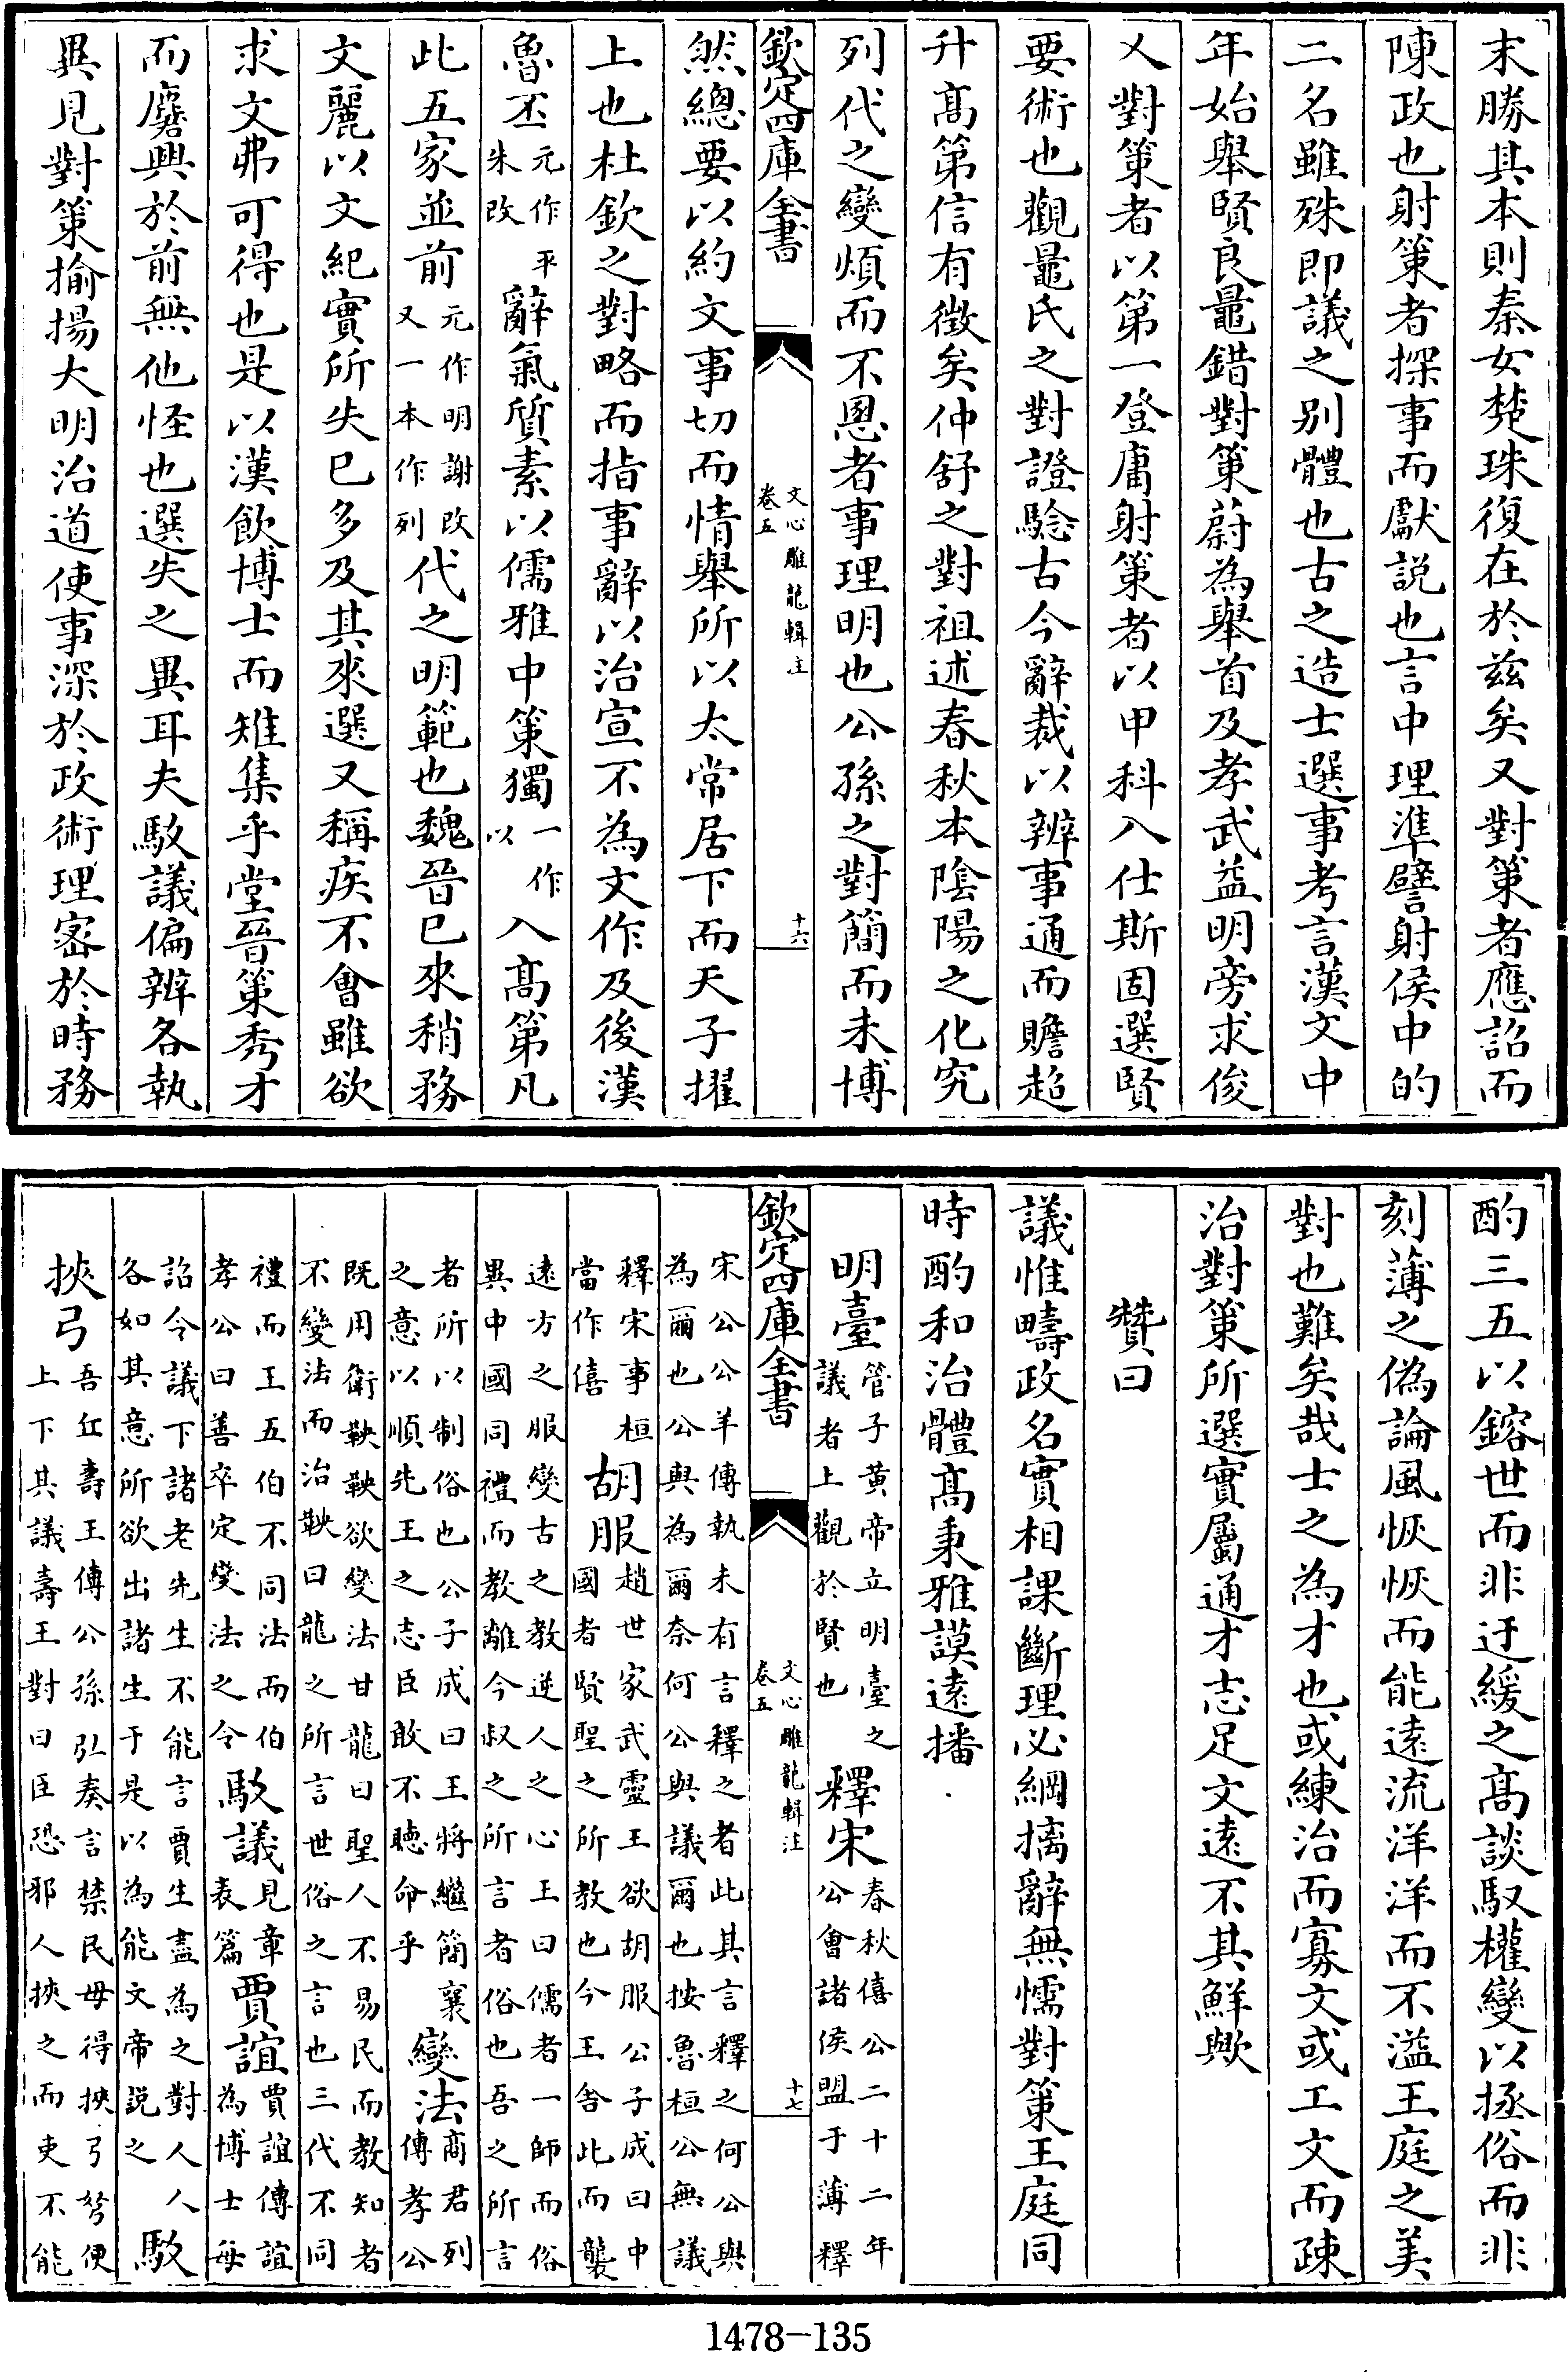 末勝其本則秦女楚珠復在於兹矣又對策者應詔而
陳政也射策者探事而獻説也言中理準譬射侯中的
二名雖殊即議之别體也古之造士選事考言漢文中
年始舉賢良鼂錯對策蔚為舉首及孝武益明旁求俊
乂對策者以第一登庸射策者以甲科入仕斯固選賢
要術也觀鼂氏之對證騐古今辭裁以辨事通而贍超
升髙第信有徴矣仲舒之對祖述春秋本陰陽之化究
列代之變煩而不慁者事理明也公孫之對簡而未博
欽定四庫全書
文心雕龍輯主
卷五
十六
然總要以約文事切而情舉所以太常居下而天子擢
上也杜欽之對略而指事辭以治宣不為文作及後漢
魯丕元作平朱改辭氣質素以儒雅中策獨一作以入髙第凡
此五家並前元作明謝改又一本作列代之明範也魏晉已來稍務
文麗以文紀實所失已多及其來選又稱疾不會雖欲
求文弗可得也是以漢飲博士而雉集乎堂晉策秀才
而麏興於前無他怪也選失之異耳夫駮議偏辨各執
異見對策揄揚大明治道使事深於政術理密於時務
酌三五以鎔世而非迂緩之髙談馭權變以拯俗而非
刻薄之偽論風恢恢而能遠流洋洋而不溢王庭之美
對也難矣哉士之為才也或練治而寡文或工文而疎
治對策所選實屬通才志足文遠不其鮮歟
贊曰
議惟疇政名實相課斷理必綱摛辭無懦對策王庭同
時酌和治體髙秉雅謨遠播
明臺管子黄帝立明臺之議者上觀於賢也釋宋春秋僖公二十二年公會諸侯盟于薄釋
宋公公羊傳執未有言釋之者此其言釋之何公與
為爾也公與為爾奈何公與議爾也按魯桓公無議
釋宋事桓當作僖胡服趙世家武靈王欲胡服公子成曰中國者賢聖之所教也今王舍此而襲
遠方之服變古之教逆人之心王曰儒者一師而俗
異中國同禮而教離今叔之所言者俗也吾之所言
者所以制俗也公子成曰王將繼簡襄之意以順先王之志臣敢不聽命乎變法商君列傳孝公
既用衛鞅鞅欲變法甘龍曰聖人不易民而教知者
不變法而治鞅曰龍之所言世俗之言也三代不同
禮而王五伯不同法而伯孝公曰善卒定變法之令駮議見章表篇賈誼賈誼傳誼為博士每
詔令議下諸老先生不能言賈生盡為之對人人各如其意所欲出諸生于是以為能文帝説之駮
挾弓吾丘壽王傳公孫弘奏言禁民毋得挾弓弩便上下其議壽王對曰臣恐邪人挾之而吏不能
欽定四庫全書
文心雕龍輯注
卷五
十七
1478-135